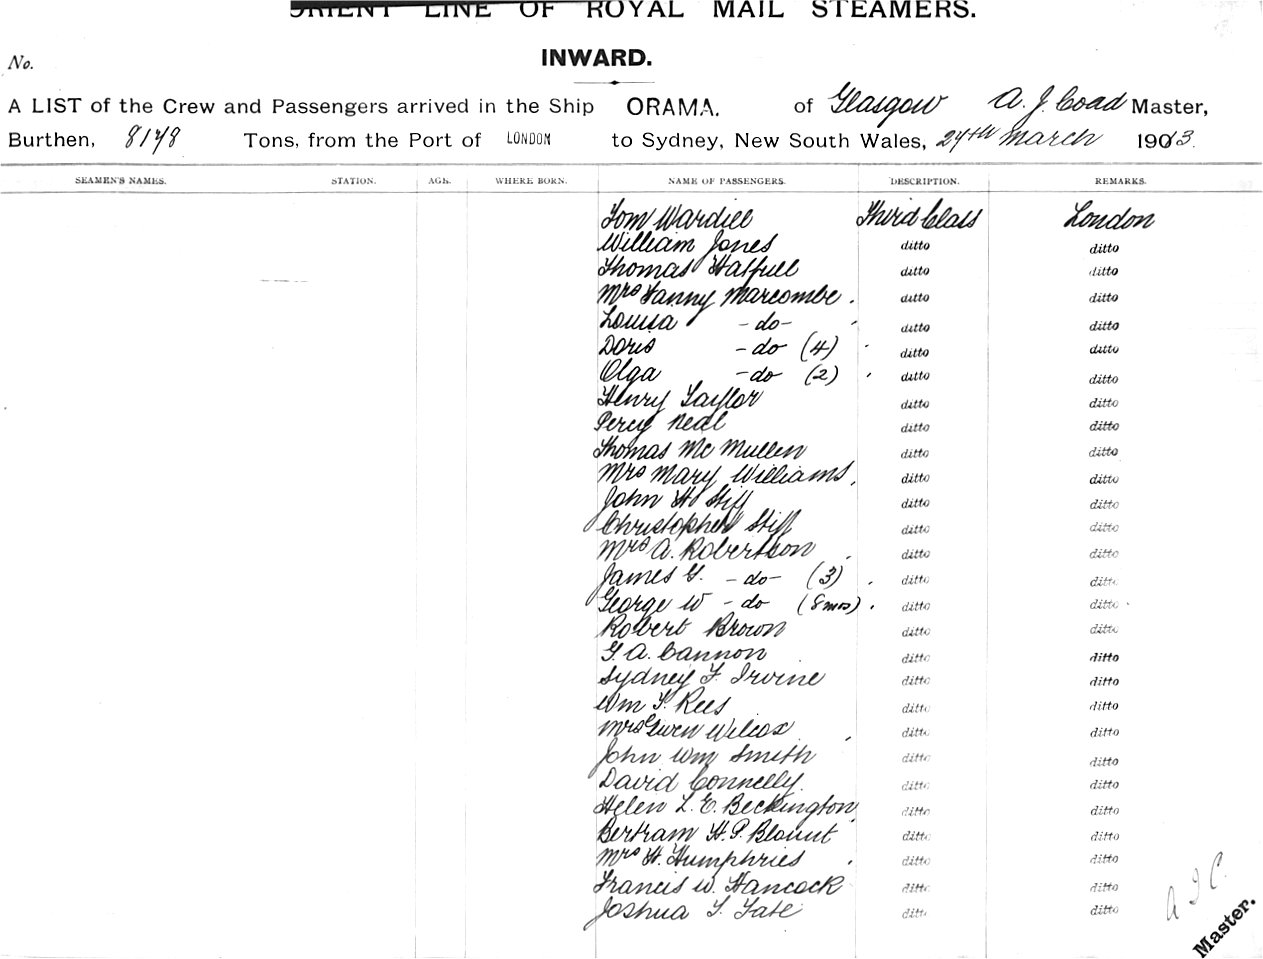 ORIENT LINE OF ROYAL MAIL STEAMERS.
INWARD.
No.
A LIST of the Crew and Passengers arrived in the Ship ORAMA. of Glasgow A. J. Coad Master,
Burthen, 8178 Tons, from the Port of LONDON to Sydney, New South Wales, 24th March 1913.
SEAMEN'S NAMES. STATION. AGE. WHERE BORN. NAME OF PASSENGERS. DESCRIPTION. REMARKS.
Tom Wardill Third Class London
William Jones ditto ditto
Thomas Hatfull ditto ditto
Mrs Fanny Marcombe ditto ditto
Louisa -do- ditto ditto
Doris -do (4) ditto ditto
Olga -do (2) ditto ditto
Henry Taylor ditto ditto
Percy Neal ditto ditto
Thomas Mc Mullen ditto ditto
Mrs Mary Williams ditto ditto
John H Stiff ditto ditto
Christopher Stiff ditto ditto
Mrs A. Robertson ditto ditto
James G. -do- (3) ditto ditto
George W -do (8 mos) ditto ditto
Robert Brown ditto ditto
G. A. Cannon ditto ditto
Sydney F. Irvine ditto ditto
Wm T. Rees ditto ditto
Mrs Gwen Wilcox ditto ditto
John Wm Smith ditto ditto
David Connelly. ditto ditto
Helen L. E. Beckington ditto ditto
Bertram H. P. Blount ditto ditto
Mrs H. Humphries ditto ditto
Francis W. Hancock ditto ditto
Joshua T. Tate ditto ditto
A J C.
Master.